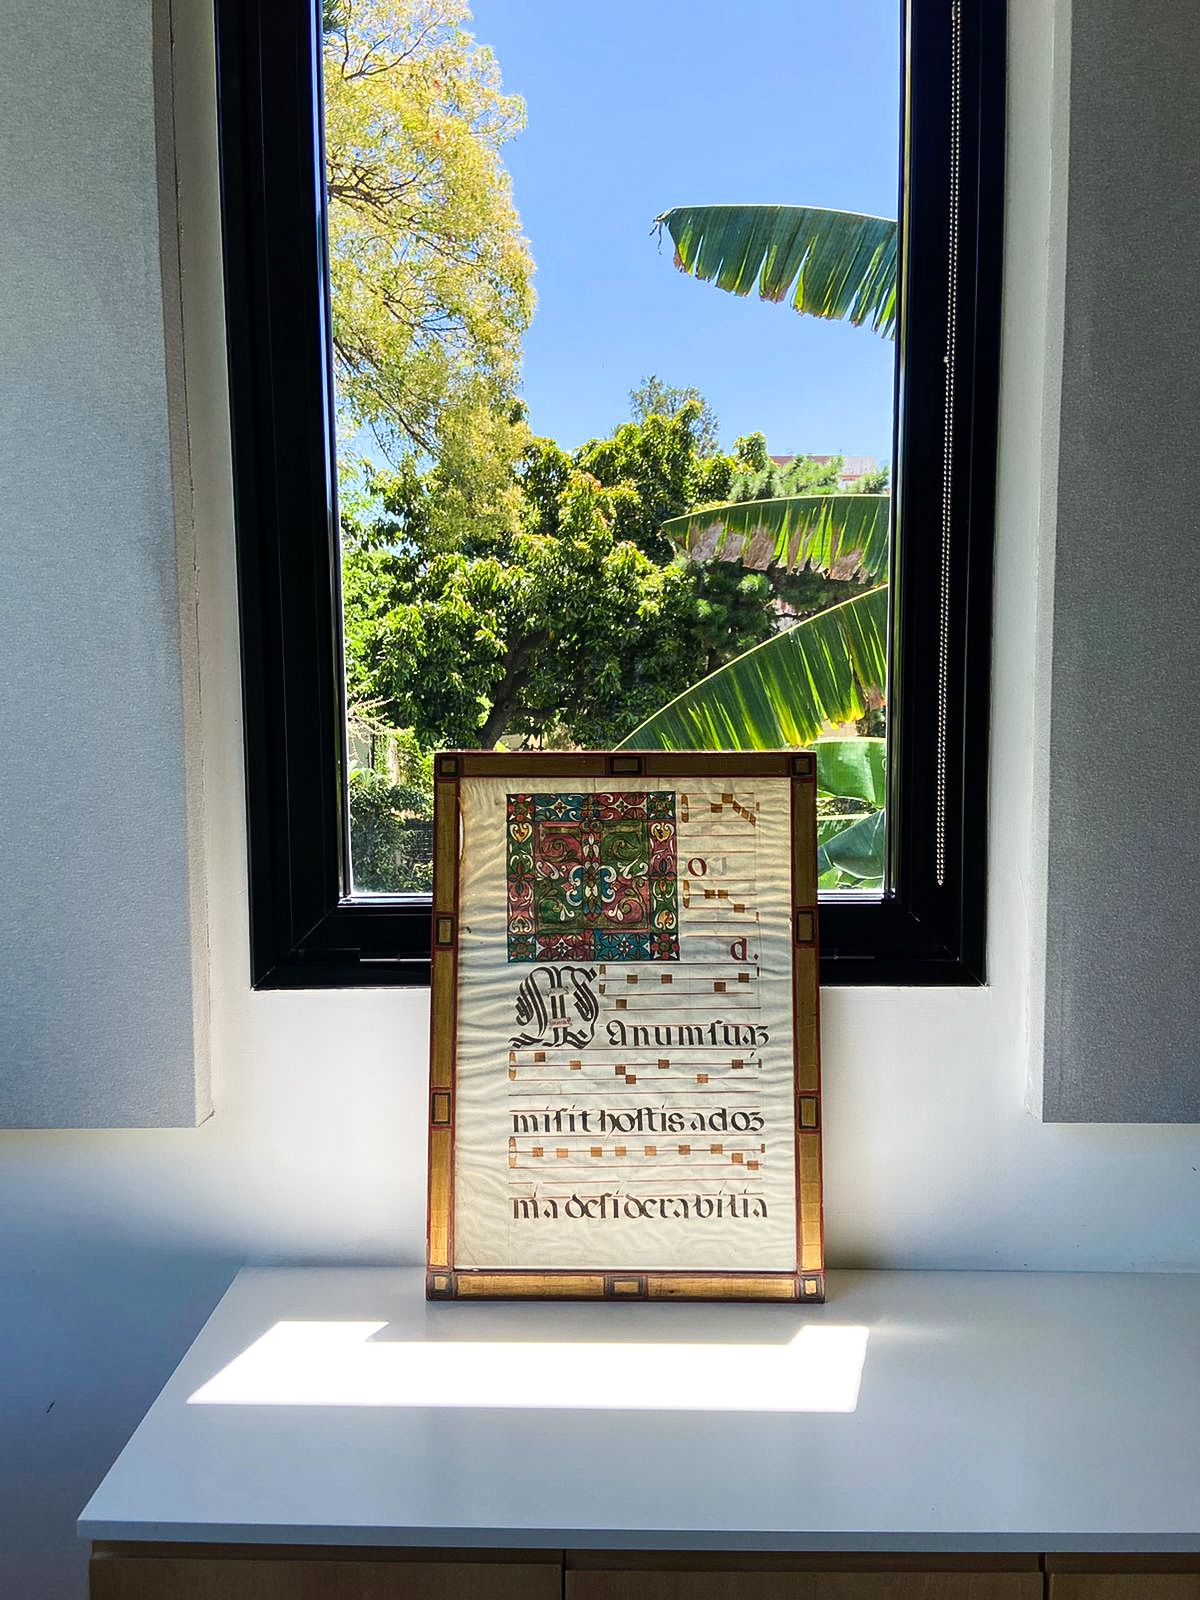 o
d.
Manum suaz
misit hostis ad oz
nia desiderabilia